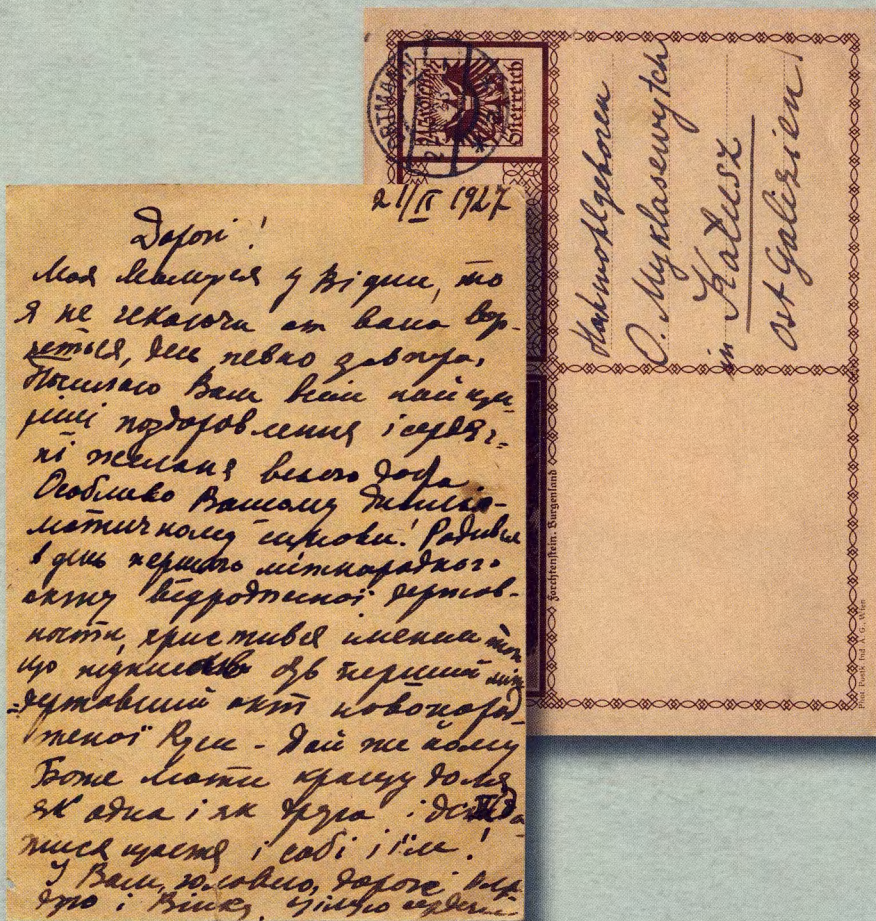 21/II 1927
Дорогі!
Моя Малуся у Відни, то
я не чекаючи аж вона вер-
неться, десь певно завтра,
Посилаю Вам всім найкра
щі поздоровлення і сердеч=
ні желаня всього добра.
Особливо Вашому дипльо-
матичному синови! Родився
в день першого міжнародного
акту відродженої держав-
ности, христився іменем того
що підписав сей перший між
=державний акт новонарод
женої Руси - дай же йому
Боже мати кращу долю
як одна і як друга і
щастя і собі і їм!
У Вас, дорогі
дро і Вінку, цілую сердечно
ORTMANN
Österreich
Hochwohlgeboren
O. Myklasewytch
in Kałusz
Ost Galizien
Forchtenstein. Burgenland
A. G., Wien